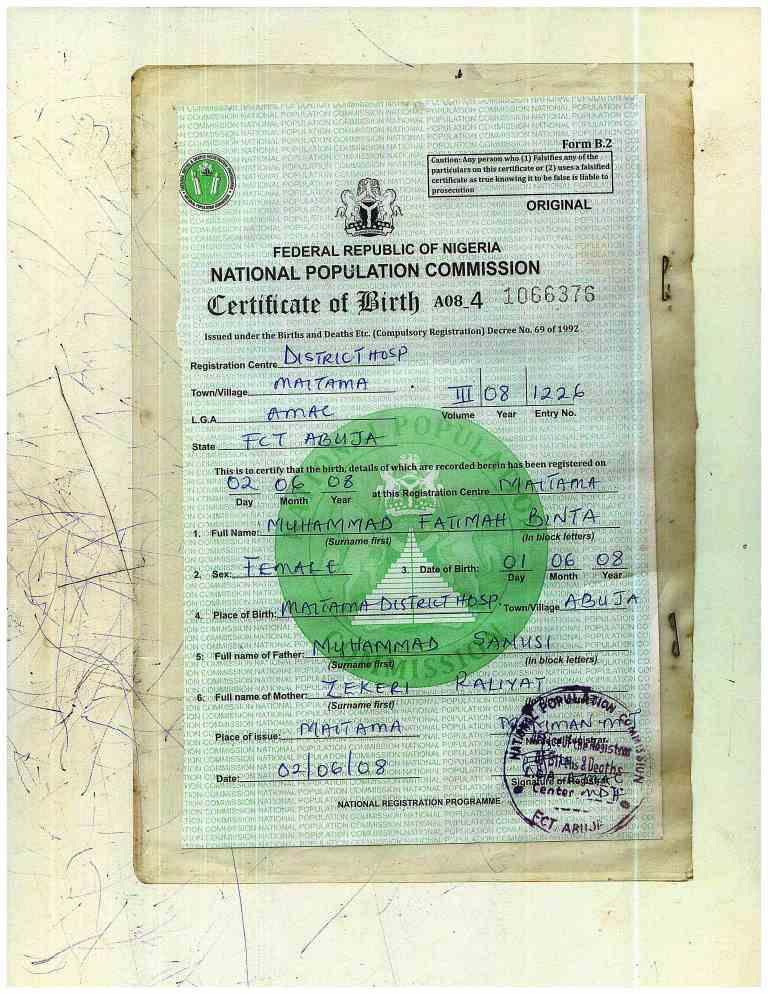 Form B.2
Caution: Any person who (1) Falsifies any of the
particulars on this certificate or (2) uses a falsified
certificate as true knowing it to be false is liable to
prosecution
ORIGINAL
FEDERAL REPUBLIC OF NIGERIA
NATIONAL POPULATION COMMISSION
Certificate of Birth A08_4 1066376
Issued under the Births and Deaths Etc. (Compulsory Registration) Decree No. 69 of 1992
Registration Centre DISTRICT HOSP
Town/Village MAITAMA
III 08 1226
L.G.A AMAC Volume Year Entry No.
State FCT ABUJA
This is to certify that the birth, details of which are recorded herein has been registered on
02 06 08 at this Registration Centre MAITAMA
Day Month Year
1. Full Name: MUHAMMAD FATIMAH BINTA
(Surname first) (In block letters)
2. Sex: FEMALE 3. Date of Birth: 01 06 08
Day Month Year
4. Place of Birth: MAITAMA DISTRICT HOSP. Town/Village ABUJA
5: Full name of Father: MUHAMMAD SANUSI
(Surname first) (In block letters)
6. Full name of Mother: ZEKERI RALIYAT
(Surname first)
Place of issue: MAITAMA
Date: 02/06/08
Signature of Registrar
NATIONAL REGISTRATION PROGRAMME
NATIONAL POPULATION COMMISSION
Births & Deaths
Center
FCT ABUJA